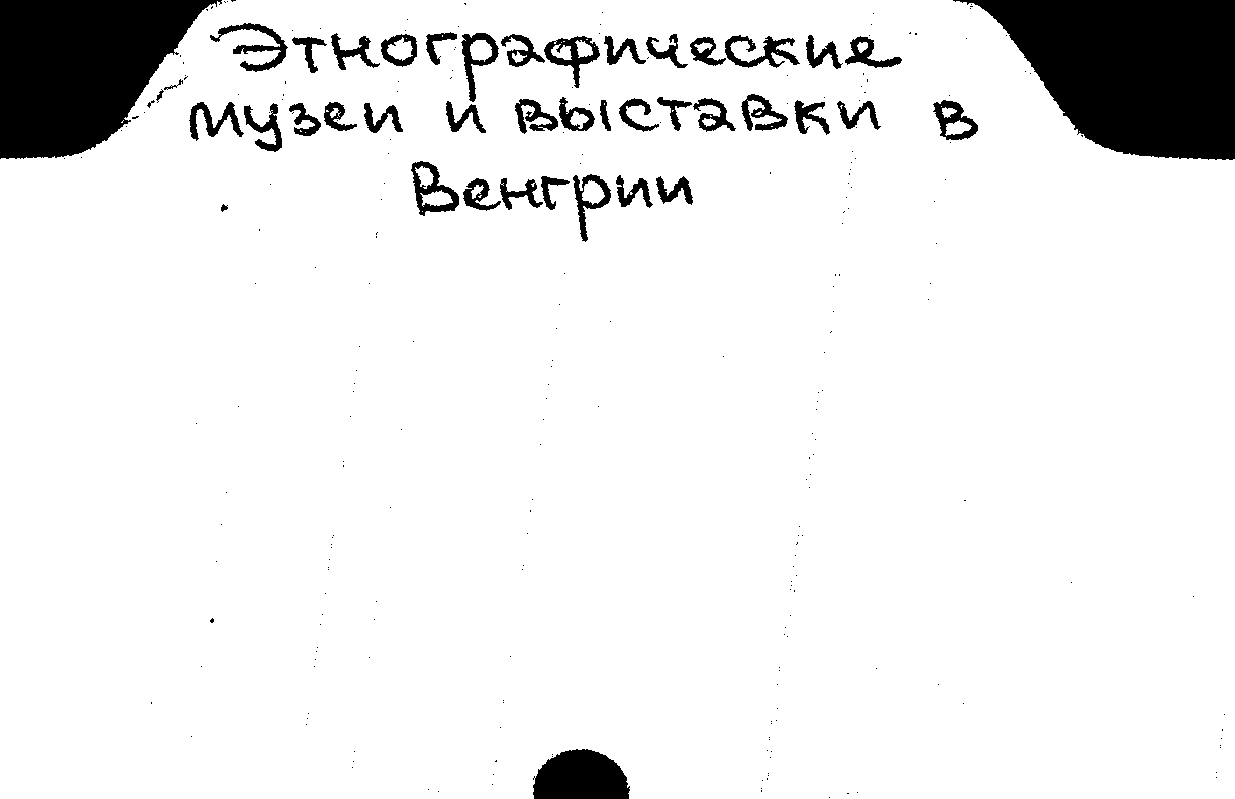 Этнографические
музеи и выставки в
Венгрии